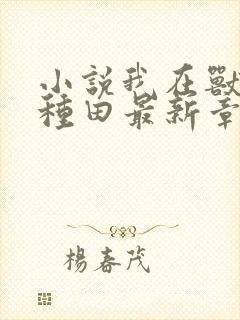 小說我在獸
種田最新章
楊春茂